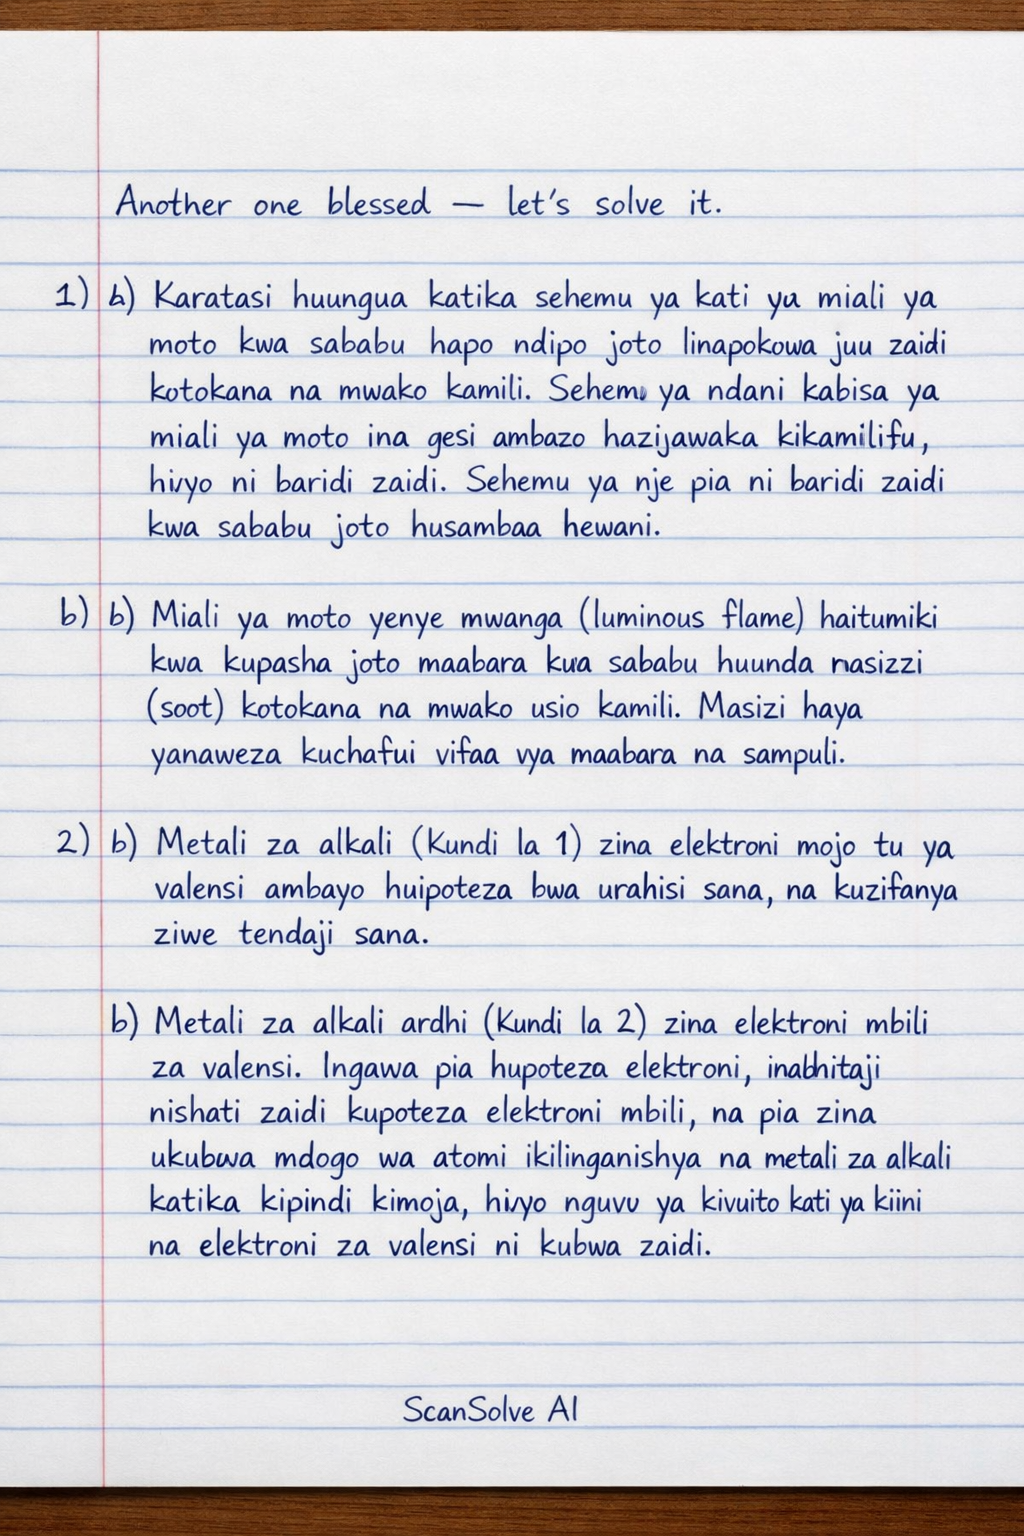 Another one blessed — let's solve it.
1) b) Karatasi huungua katika sehemu ya kati yu miali ya
moto kwa sababu hapo ndipo joto linapokowa juu zaidi
kotokana na mwako kamili. Sehemu ya ndani kabisa ya
miali ya moto ina gesi ambazo hazijawaka kikamilifu,
hivyo ni baridi zaidi. Sehemu ya nje pia ni baridi zaidi
kwa sababu joto husambaa hewani.
b) b) Miali ya moto yenye mwanga (luminous flame) haitumiki
kwa kupasha joto maabara kua sababu huunda nasizzi
(soot) kotokana na mwako usio kamili. Masizi haya
yanaweza kuchafui vifaa vya maabara na sampuli.
2) b) Metali za alkali (Kundi la 1) zina elektroni mojo tu ya
valensi ambayo huipoteza bwa urahisi sana, na kuzifanya
ziwe tendaji sana.
b) Metali za alkali ardhi (Kundi la 2) zina elektroni mbili
za valensi. Ingawa pia hupoteza elektroni, inabhitaji
nishati zaidi kupoteza elektroni mbili, na pia zina
ukubwa mdogo wa atomi ikilinganishya na metali za alkali
katika kipindi kimoja, hivyo nguvu ya kivuito kati ya kiini
na elektroni za valensi ni kubwa zaidi.
ScanSolve AI